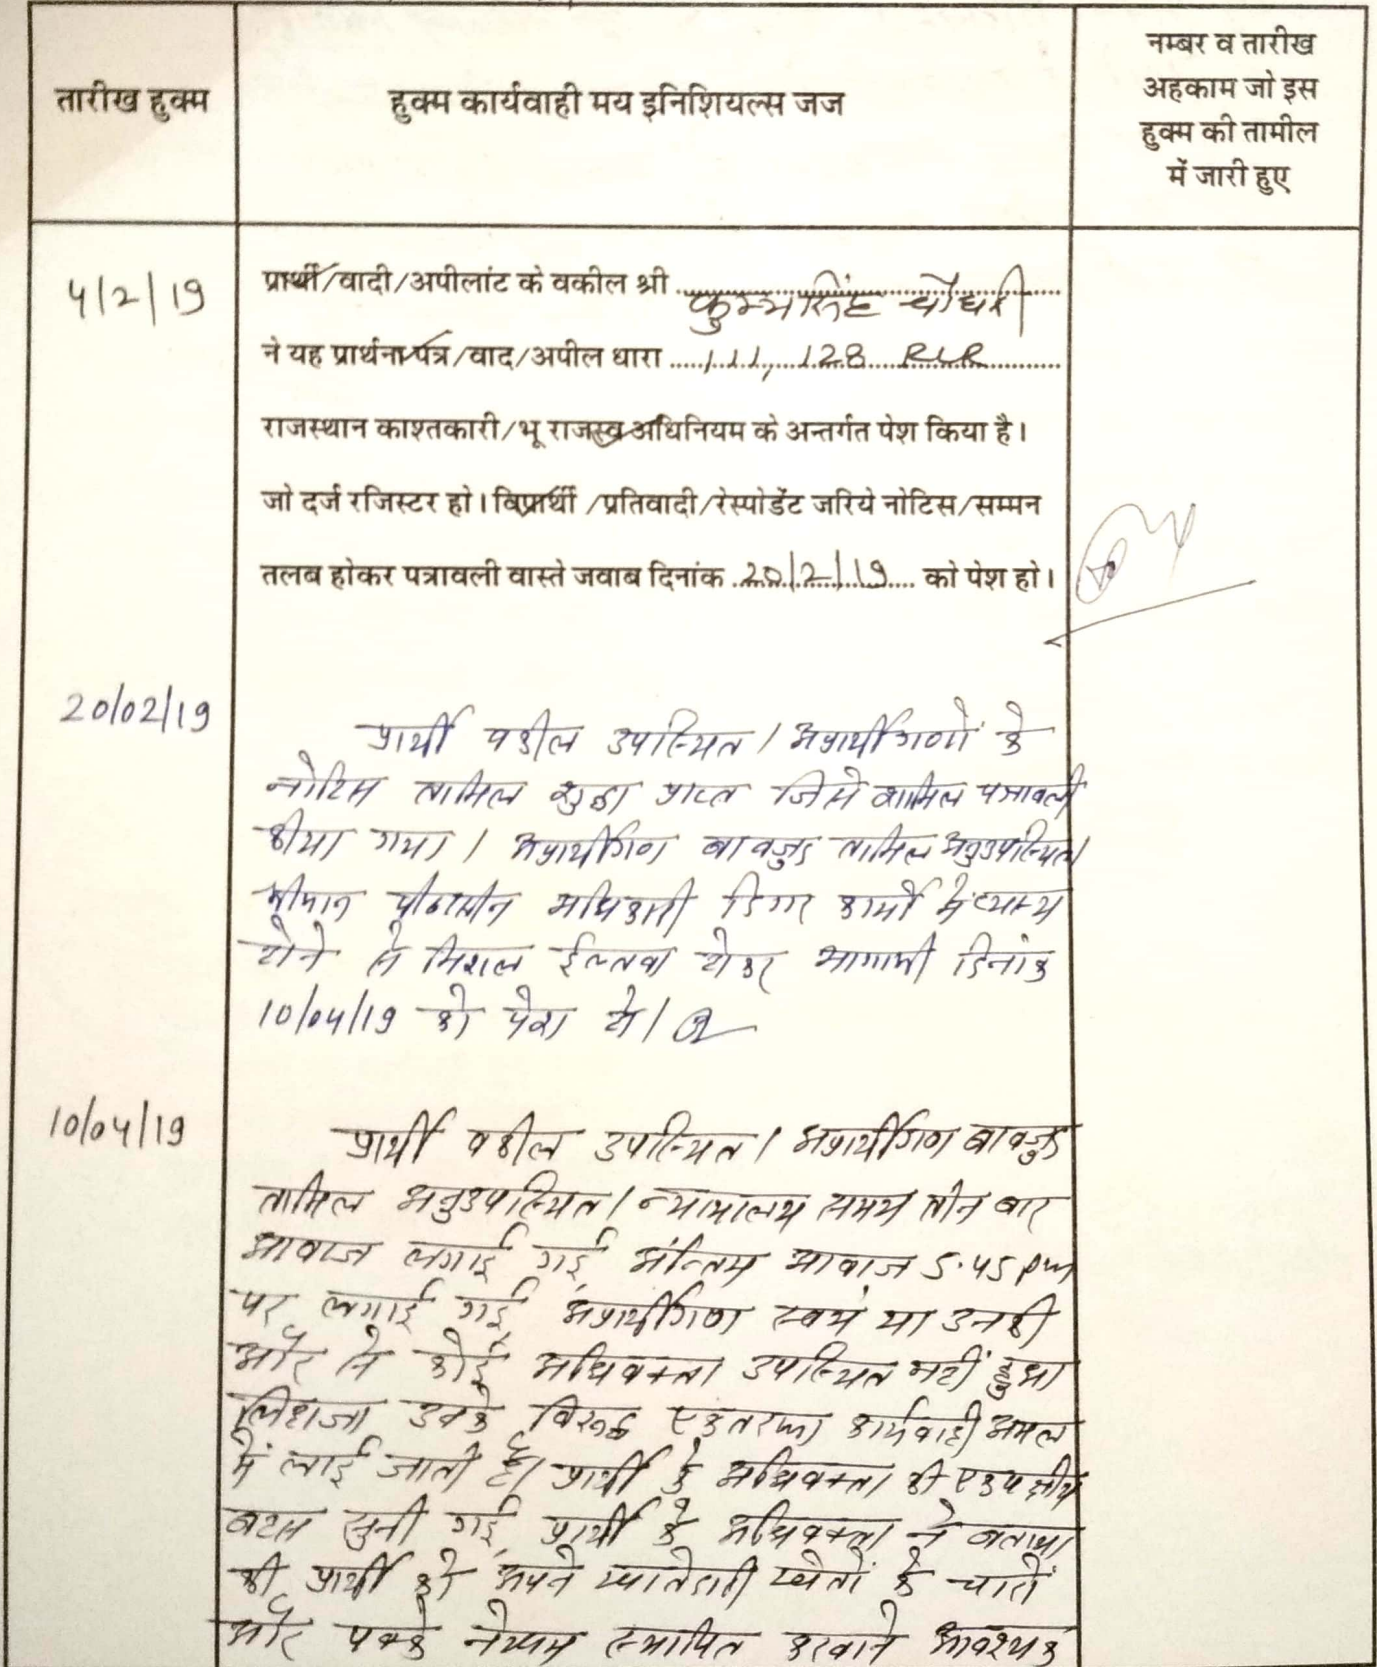 तारीख हुक्म
हुक्म कार्यवाही मय इनिशियल्स जज
नम्बर व तारीख
अहकाम जो इस
हुक्म की तामील
में जारी हुए
4/2/19
प्रार्थी/वादी/अपीलांट के वकील श्री कुम्भसिंह चौधरी
ने यह प्रार्थना पत्र/वाद/अपील धारा 111, 128 RLR
राजस्थान काश्तकारी/भू राजस्व अधिनियम के अन्तर्गत पेश किया है।
जो दर्ज रजिस्टर हो। विप्रार्थी/प्रतिवादी/रेस्पोडेंट जरिये नोटिस/सम्मन
तलब होकर पत्रावली वास्ते जवाब दिनांक 20/2/19 को पेश हो।
20/02/19
प्रार्थी वकील उपस्थित। अप्रार्थीगणों के
नोटिस तामिल शुदा प्राप्त जिसे शामिल पत्रावली
कीया गया। अप्रार्थीगण बावजुद तामिल अनुउपस्थित।
श्रीमान पीठासीन अधिकारी डिगर कार्यो में व्यस्थ
होने से मिशल ईल्तवा होकर आगामी दिनांक
10/04/19 को पेश हो।
10/04/19
प्रार्थी वकील उपस्थित। अप्रार्थीगण बावजुद
तामिल अनुउपस्थित। न्यायालय समय तीन बार
आवाज लगाई गई, अंन्तिम आवाज 5.45 pm
पर लगाई गई, अप्रार्थीगण स्वयं या उनकी
और से कोई अधिवक्ता उपस्थित नहीं हुआ
लिहाजा उनके विरूद्ध एकतरफा कार्यवाही अमल
में लाई जाती है। प्रार्थी के अधिवक्ता की एकपक्षीय
बहस सुनी गई, प्रार्थी के अधिवक्ता ने बताया
की प्रार्थी को अपने खातेदारी खेतों के चारों
और पक्के नेखम स्थापित करवाने आवश्यक